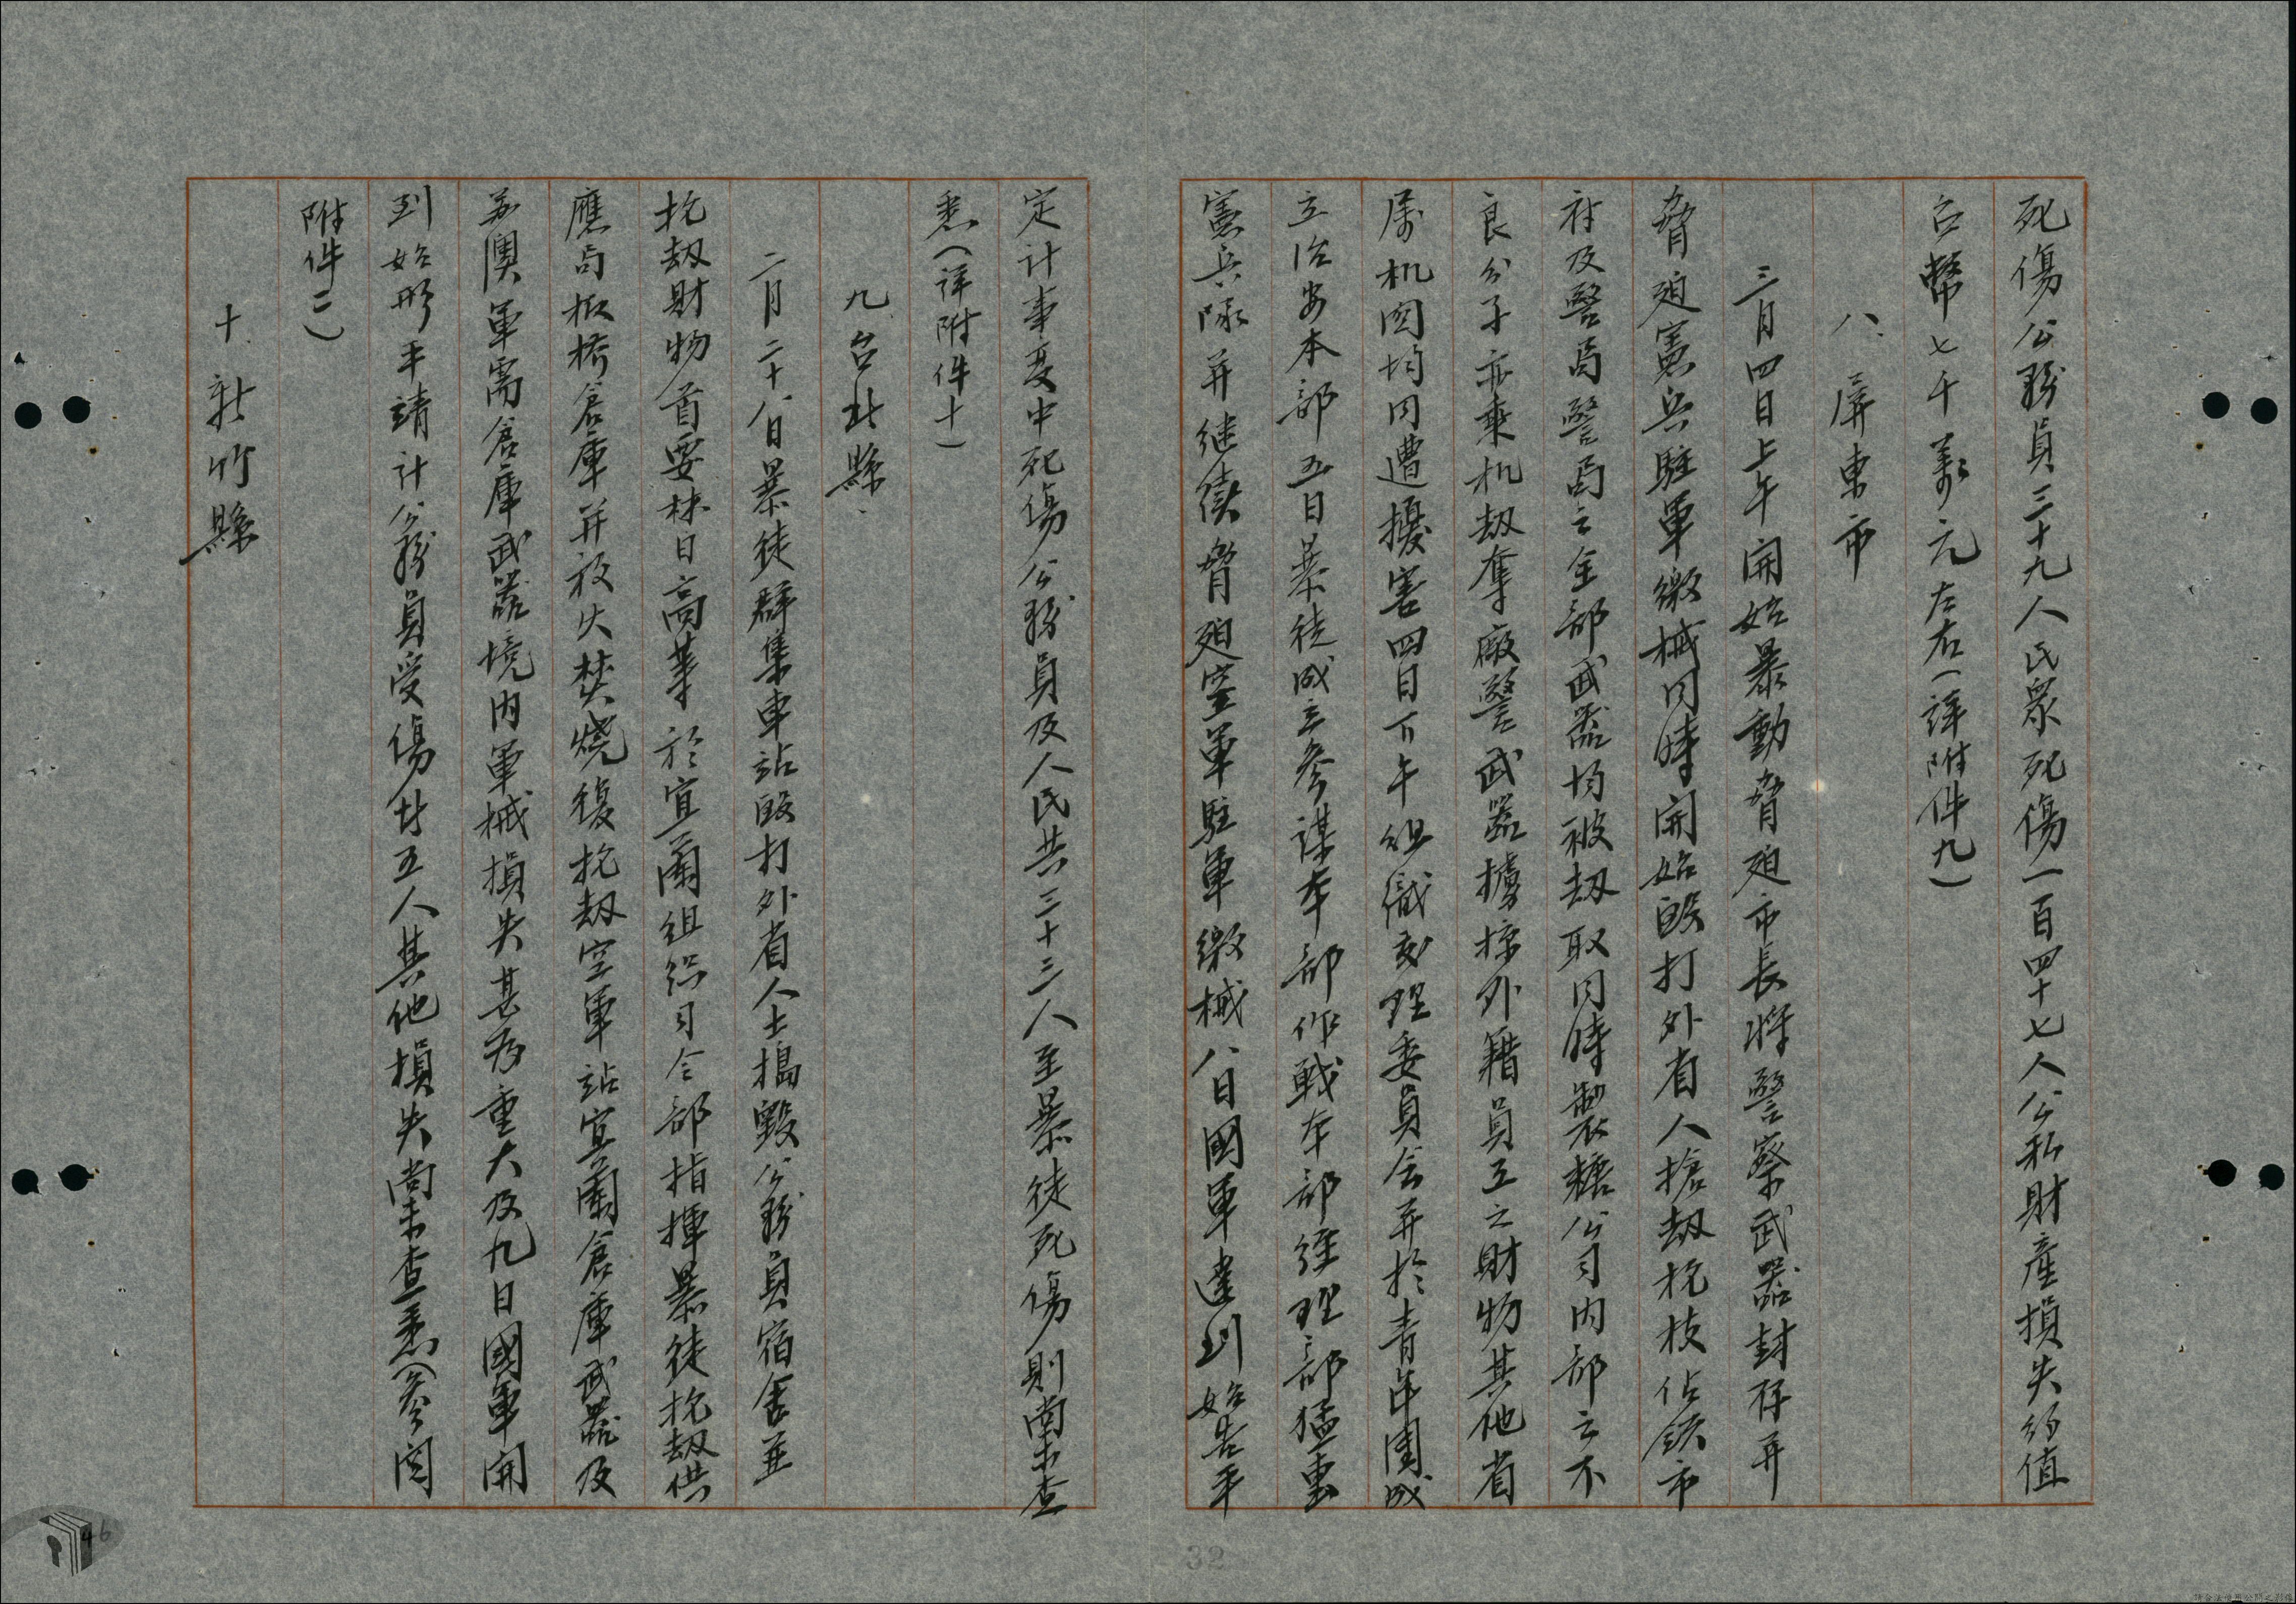 死傷公務員三十九人民眾死傷一百四十七人公私財產損失約值
台幣七千萬元左右(詳附件九)
八、屏東市
三月四日上午開始暴動脅迫市長將警察武器封存并
脅迫憲兵駐軍繳械同時開始毆打外省人搶劫槍枝佔領市
府及警局警局之全部武器均被劫取同時製糖公司內部之不
良分子亦乘机劫奪廠警武器擄掠外籍員工之財物其他省
屬机関均同遭擾害四日下午組織處理委員会并於青年團成
立治安本部五日暴徒成立參謀本部作戰本部經理部猛重
憲兵隊并继續脅迫空軍駐軍繳械八日國軍達到始告平
定計事变中死傷公務員及人民共三十三人至暴徒死傷則尚未查
悉(詳附件十)
九台北縣
二月二十八日暴徒群集車站毆打外省人士搗毀公務員宿舍並
抢劫財物首要林日高等於宜蘭組织司令部指揮暴徒抢劫供
應局板桥倉庫并放火焚燒後抢劫空軍站宜蘭倉庫武器及
苏澳軍需倉庫武器境內軍械損失甚为重大及九日國軍開
到始形平靖計公務員受傷廿五人其他損失尚未查悉(參閱
附件二)
十、新竹縣
32
46